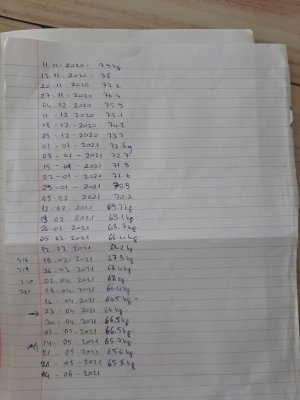 11-11-2020 - 79 kg
13-11-2020 - 78
20-11-2020 77.2
27-11-2020 76.4
04-12-2020 75.9
11-12-2020 75.1
18-12-2020 74.2
25-12-2020 73.7
01-01-2021 72.8g
08-01-2021 72.7
15-01-2021 71.9
22-01-2021 71.6
29-01-2021 70.9
05-02-2021 70.2
12-02-2021 69.7kg
19-02-2021 69.1kg
26-02-2021 68.7kg
05-03-2021 68.4kg
12-03-2021
19-03-2021 67.9kg
26-03-2021 67.4kg
02-04-2021 67kg
09-04-2021 66.4kg
16-04-2021
→ 23-04-2021
30-04-2021 66.5kg
07-05-2021 66.5kg
14-05-2021 65.7kg
21-05-2021 65.6kg
28-05-2021 65.8kg
04-06-2021